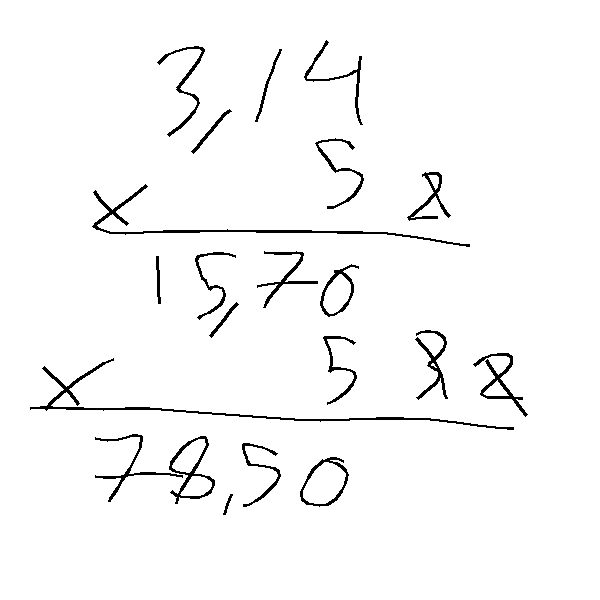 3,14
× 5 2
15,70
× 5 3 2
78,50